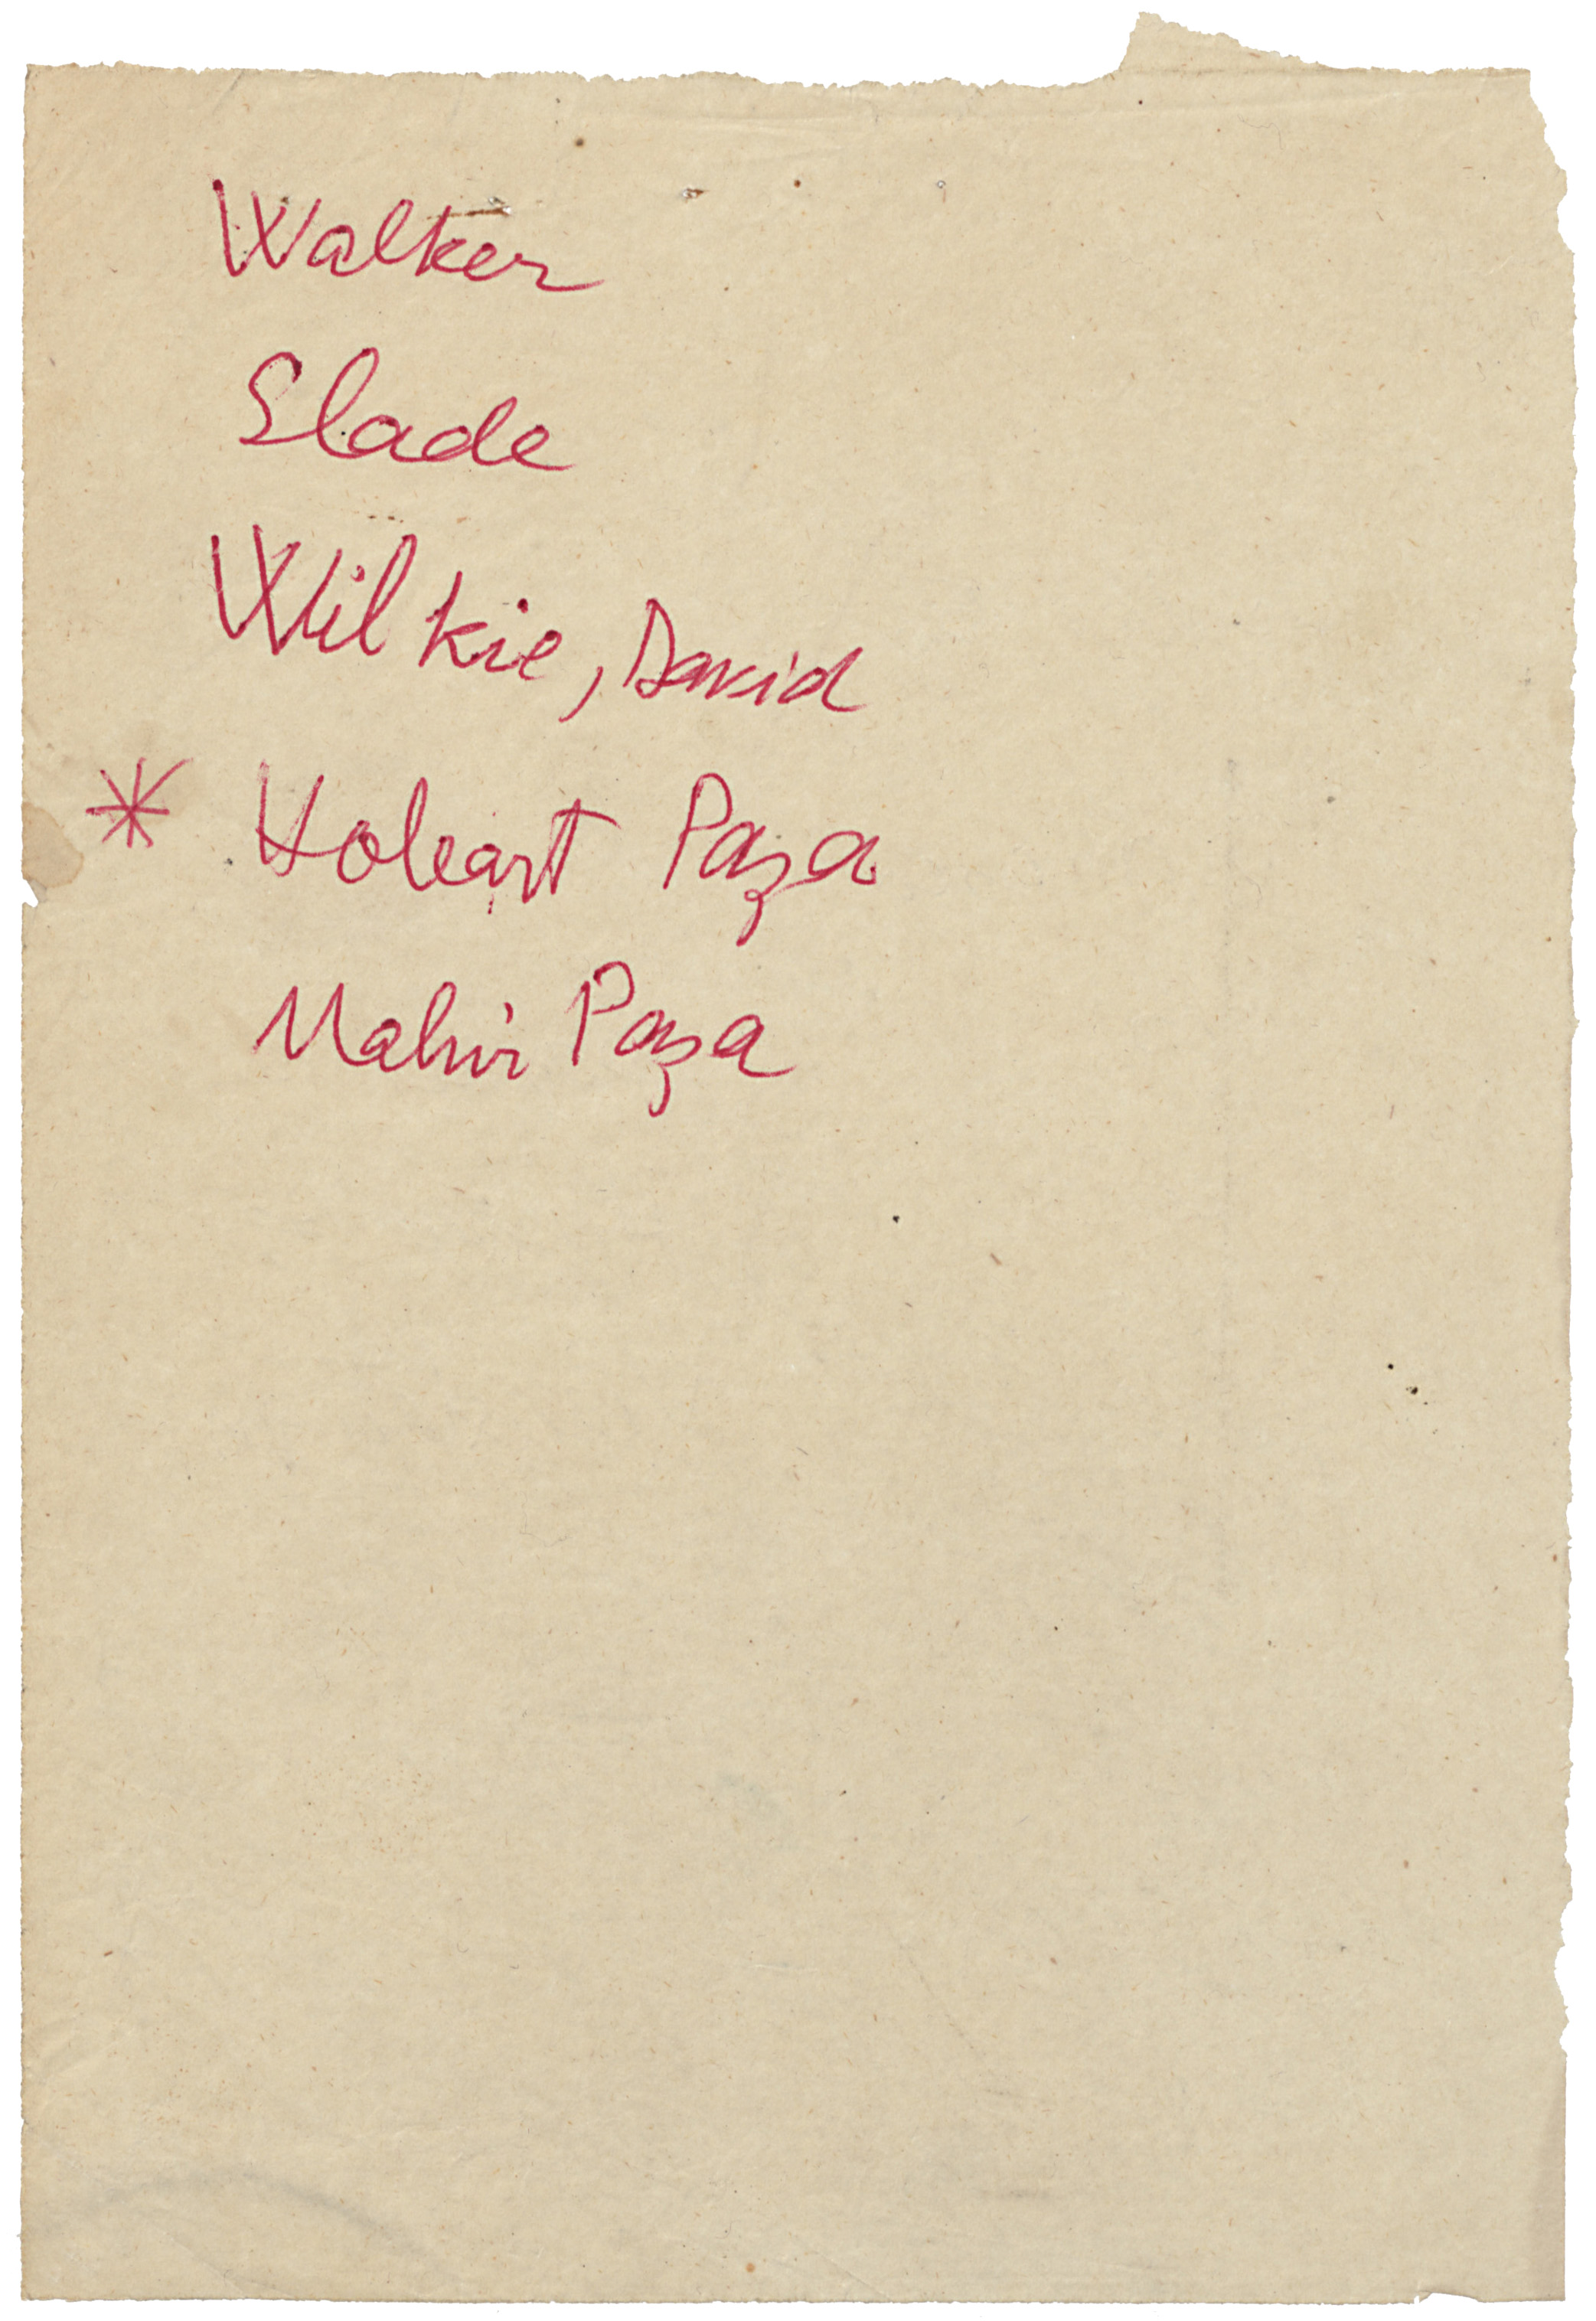 Walker
Slade
Wilkie, David
* Hobart Paşa
Mahir Paşa